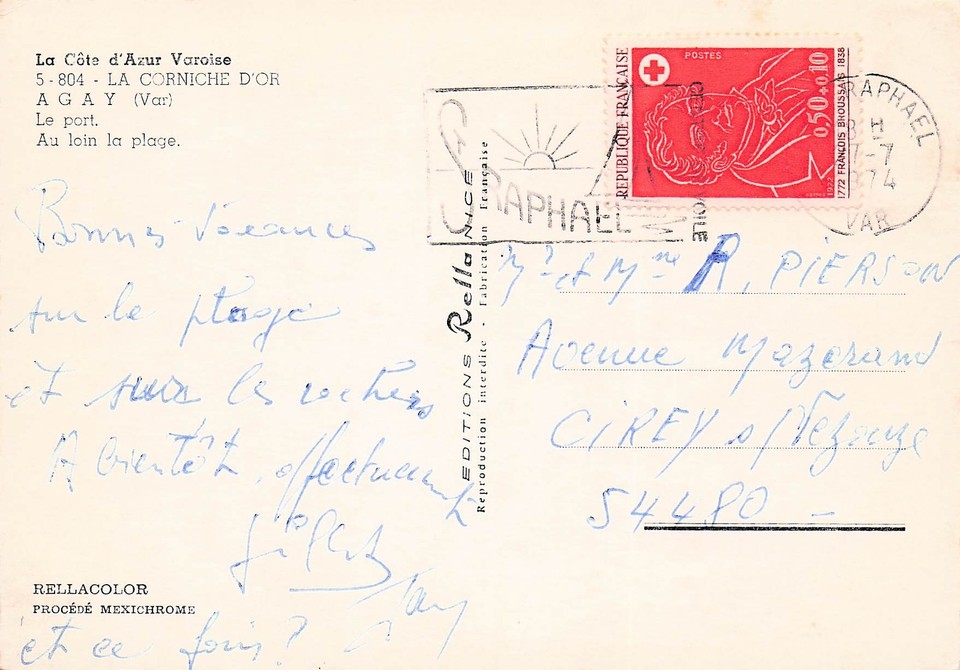 La Côte d'Azur Varoise
5-804 - LA CORNICHE D'OR
AGAY (Var)
Le port.
Au loin la plage.
Bonnes Vacances
sur la plage
et sur les rochers
A bientôt, affectueusement
et ce
RELLACOLOR
PROCÉDÉ MEXICHROME
EDITIONS Rella NICE
Reproduction interdite - Fabrication Française
RAPHAEL
POSTES
REPUBLIQUE FRANÇAISE
0,50+0,10
1772 FRANÇOIS BROUSSAIS 1838
RAPHAEL
H
7-7
1974
VAR
Mr et Mme R. PIERSON
Avenue Mazerand
CIREY s/Vezouze
54480